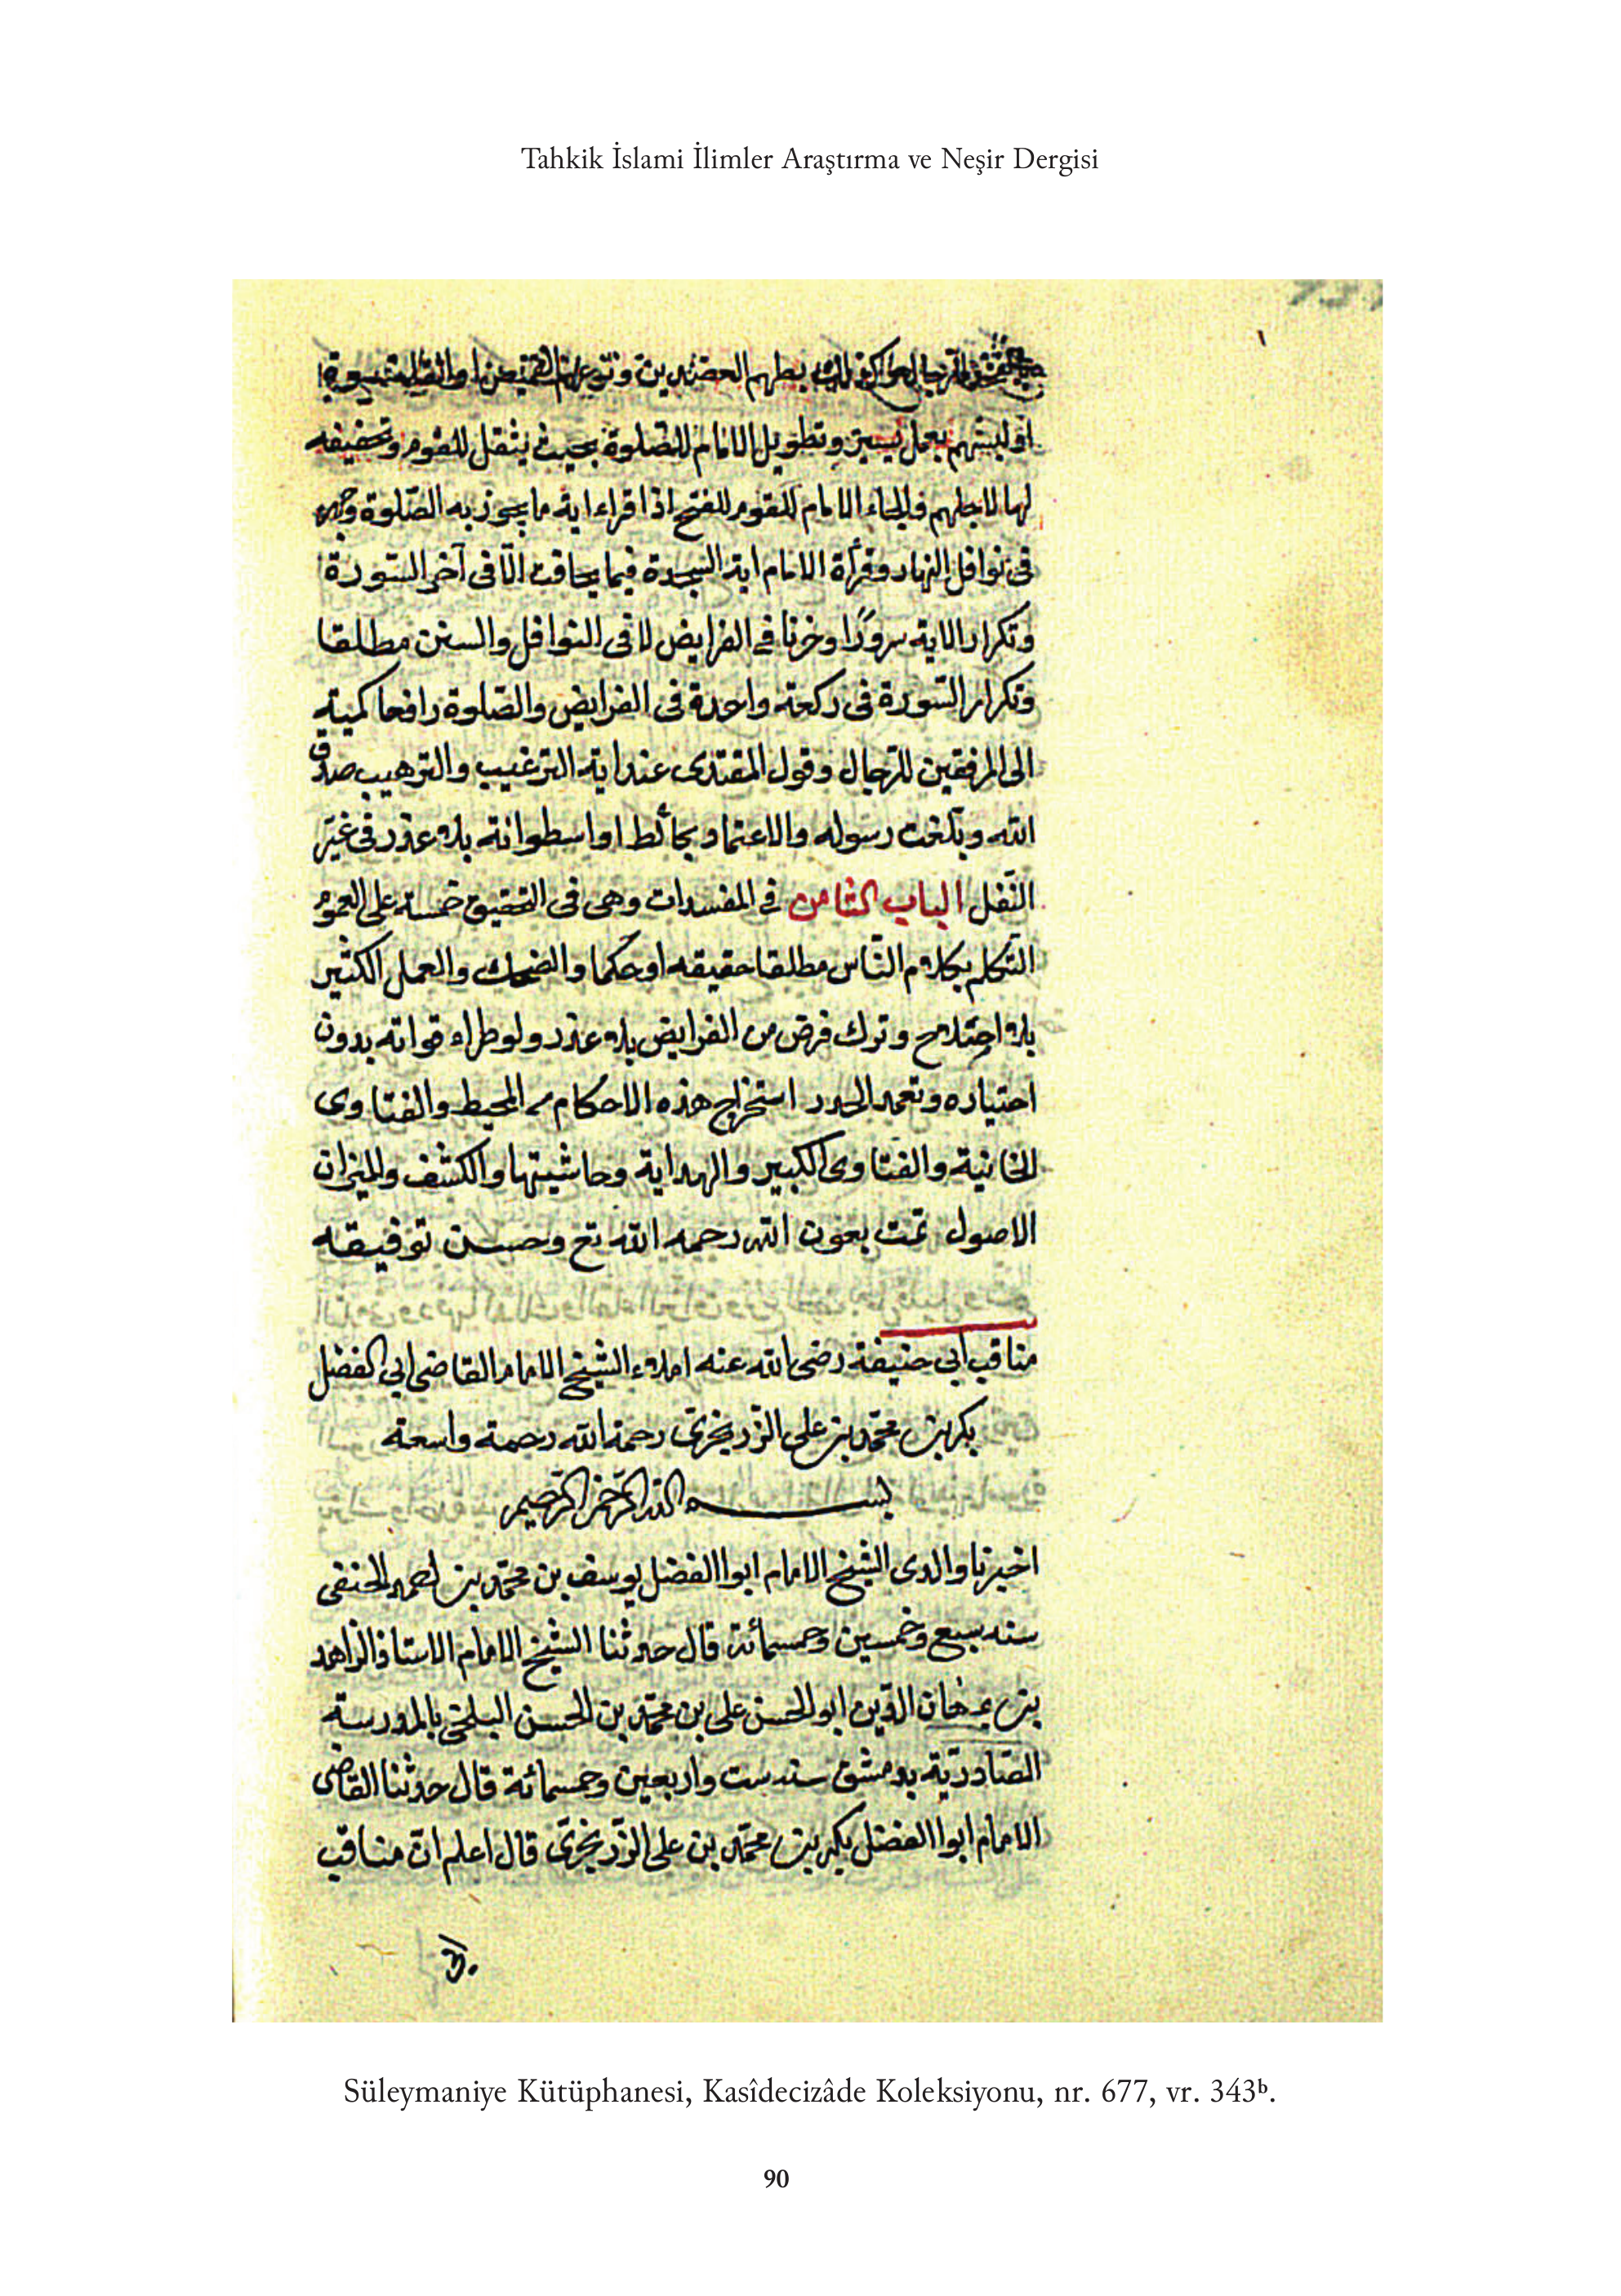 Tahkik İslami İlimler Araştırma ve Neşir Dergisi
العضدين ونزع القميص او القلنسوة
او لبسهم بعمل يسير وتطويل الامام للصلوة بحيث يثقل للقوم وتخفيفه
لها لاجلهم والجاء الامام للقوم للفتح اذا قراء اية ما يجوز به الصلوة وجهر
فى نوافل النهار وقرأة الامام اية السجدة فيما يخافت الّا فى آخر السّورة
وتكرار الاية سرورًا وحزنا فى الفرايض لا فى النوافل والسنن مطلقا
وتكرار السّورة فى ركعة واحدة فى الفرايض والصّلوة رافعا كميه
الى المرفقين للرجال وقول المقتدى عند اية الترغيب والترهيب صدق
الله وبلّغت رسوله والاعتماد بحائط او اسطوانة بلا عذر فى غير
النّفل الباب الثامن فى المفسدات وهى فى التحقيق خمسة على العموم
التّكلم بكلام النّاس مطلقا حقيقه او حكما والضحك والعمل الكثير
بلا اصلاح وترك فرض من الفرايض بلا عذر ولو طراء فواته بدون
احتياره وتعمد الحدث استخراج هذه الاحكام من المحيط والفتاوى
الخانية والفتاوى الكبير والهداية وحاشيتها والكشف والميزان
الاصول تمت بعون الله رحمه الله تع وحسن توفيقه
مناقب ابى حنيفة رضى الله عنه املاء الشيخ الامام القاضى ابى الفضل
بكر بن محمّد بن على الزّرنجرىّ رحمة الله رحمة واسعة
بسم الله الرّحمن الرّحيم
اخبرنا والدى الشيخ الامام ابوا الفضل يوسف بن محمّد بن احمد الحنفى
سنه سبع وخمسين وخمسمائة قال حدثنا الشيخ الامام الاستاذ الزاهد
برهان الدّين ابو الحسن على بن محمّد بن الحسن البلخى بالمدرسة
الصّادريّة بدمشق سنه ست واربعين وخمسمائة قال حدثنا القاضى
الامام ابوا الفضل بكر بن محمّد بن على الزّرنجرىّ قال اعلم انّ مناقب
Süleymaniye Kütüphanesi, Kasîdecizâde Koleksiyonu, nr. 677, vr. 343ᵇ.
90